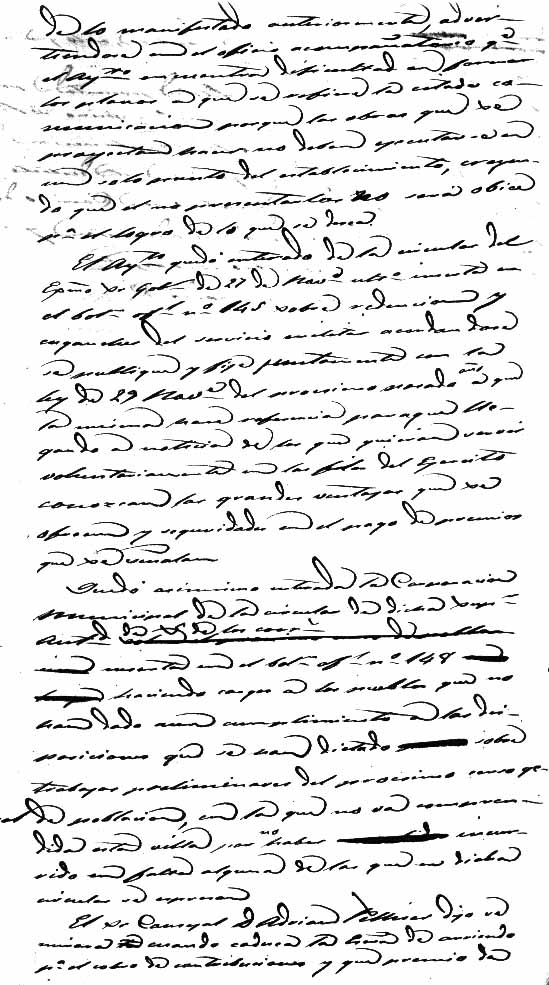 de lo manifestado anteriormente, adver-
tiendose en el oficio acompañatorio qe
el Aymto encuentra dificultad en formar
los planos a que se refiere la citada co-
municacion porque las obras que se
proyectan hacer no deben ejecutarse en
un solo punto del establecimiento, creyen-
do que el no presentarlos no sera obice
pa el logro de lo que se desea.
El Aymto quedó enterado de la circular del
Exmo Sr Gobr de 27 de Novre ultmo inserta en
el boln ofl nº 145 sobre redenciones y
enganches del servicio militar acordandose
se publique y fije juntamente con la
ley de 29 Novre del procsimo pasado año a que
la misma hace referencia para que lle-
gando a noticia de los que quieran servir
voluntariamente en las filas del Ejercito
conozcan las grandes ventajas que se
ofrecen y seguridades en el pago de premios
que se señalan
Quedó asimismo enterada la Corporacion
Municipal de la circular de dicha supr
Autd de
inserta en el boln ofl nº 148
haciendo cargo a los pueblos que no
han dado aun cumplimiento a las dis-
posiciones que se han dictado sobre
trabajos preliminares del procsimo censo ge-
ral de poblacion, en la que no va compren-
dida esta villa por no haber incur-
rido en falta alguna de las que en dicha
circular se expresan
El Sr Concejal D. Adrian dijo se
cuando caduca la de arriendo
pa el cobro de contribuciones y que premio de